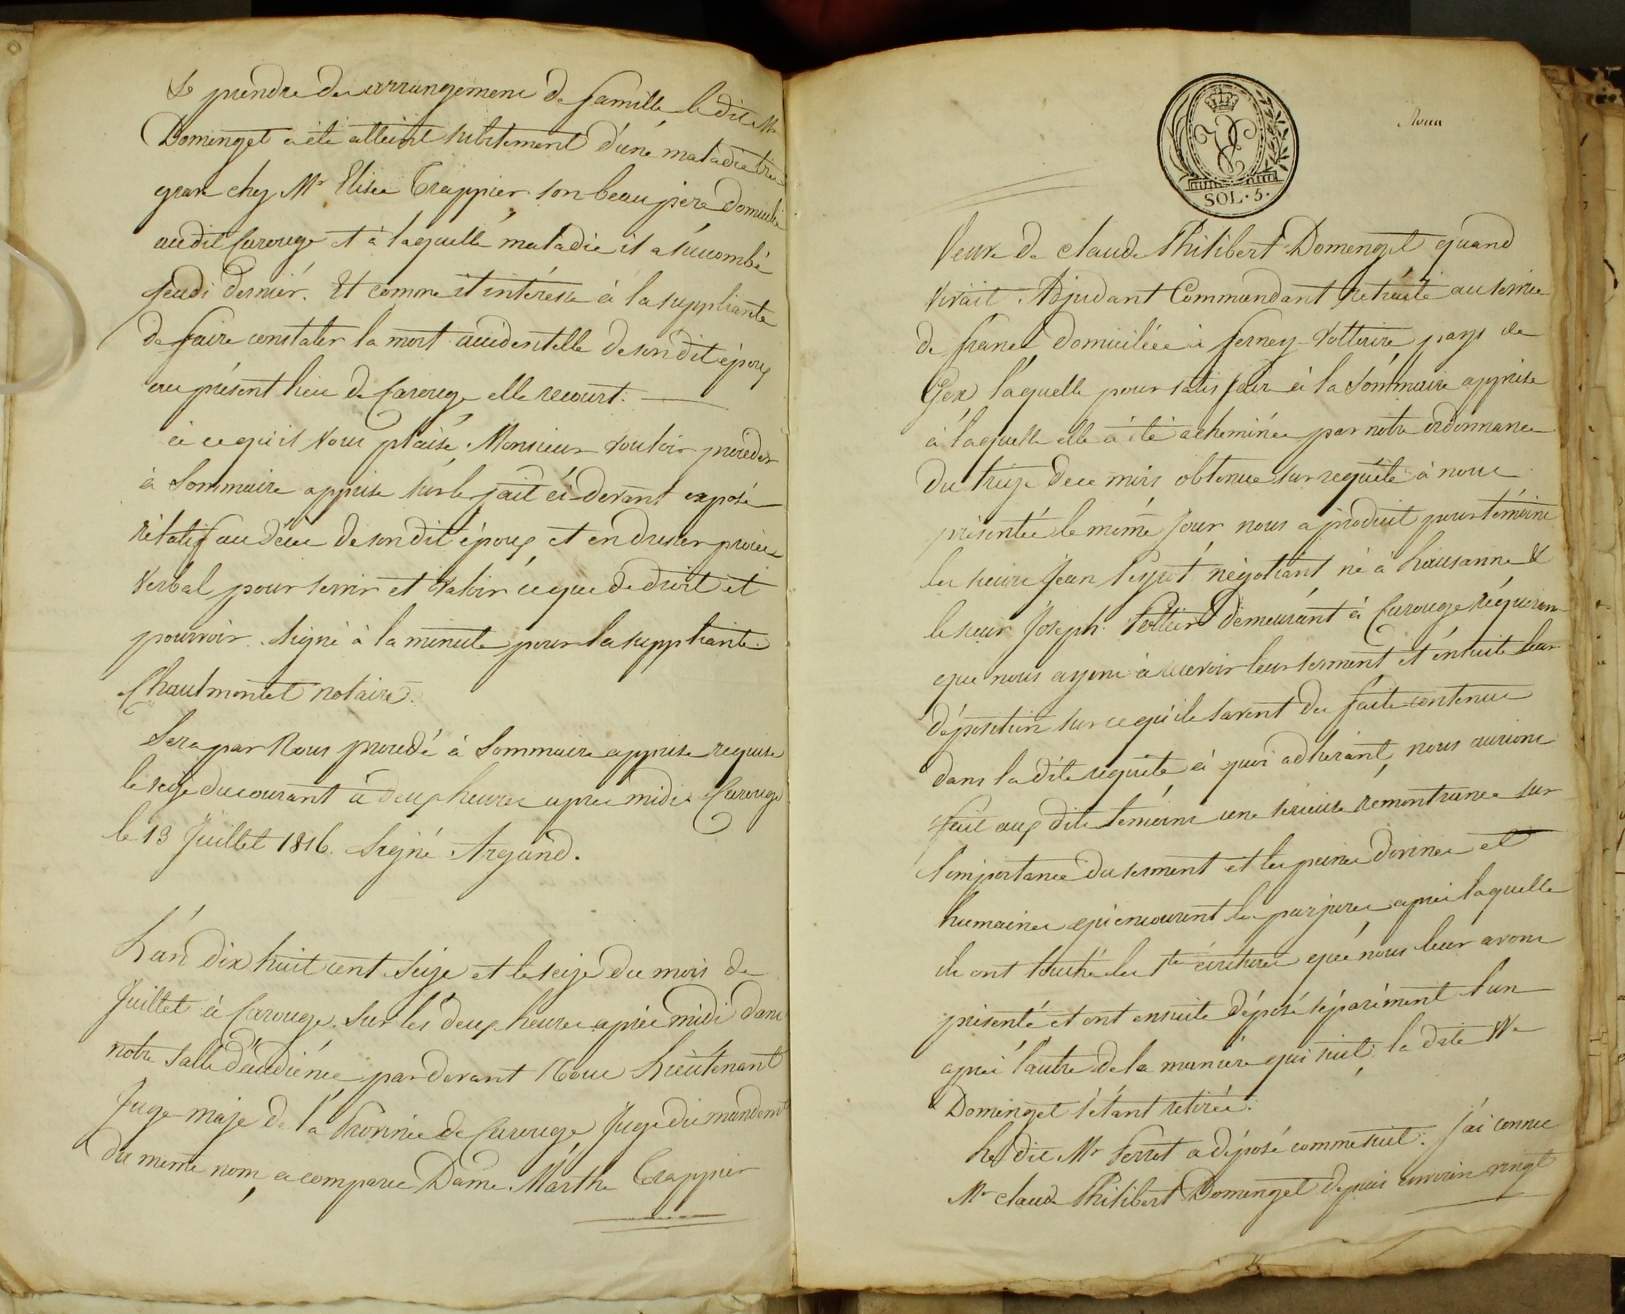 & prendre des arrangemens de famille, le dit Mr
Domenget a été atteint subitement d'une maladie très
grave chez Mr Elisée Trappier son beau père domicilié
au dit Carouge et à laquelle maladie il a succombé
Jeudi dernier. Et comme il intéresse à la suppliante
de faire constater la mort accidentelle de son dit époux
au présent lieu de Carouge elle recourt.
à ce qu'il vous plaise, Monsieur vouloir procéder
à Sommaire apprise sur le fait ci-devant exposé
rélatif au décès de son dit époux et en dresser procès
verbal pour servir et valoir ce que de droit et
pourvoir. Signé à la minute pour la suppliante
Chaulmontet notaire.
Sera par Nous procédé à Sommaire apprise requise
le seize du courant à deux heures après midi. Carouge
le 13 Juillet 1816. Signé Argand.
L'an dix huit cent seize et le seize du mois de
Juillet à Carouge sur les deux heures après midi dans
notre salle d'audience, par devant Nous Lieutenant
Juge-maje de la Province de Carouge Juge du mandemt
du meme nom, a comparu Dame Marthe Trappier
SOL. 5.
Veuve de Claude Philibert Domenget quand
vivait Adjudant Commandant retraité au service
de france domiciliée à ferney-Voltaire pays de
Gex laquelle pour satisfair à la Sommaire apprise
à laquelle elle a été acheminée par notre ordonnance
du treize de ce mois obtenue sur requête à nous
présentée le même jour, nous a produit pour témoins
les sieurs Jean negotiant né à Lausanne &
le sieur Joseph demeurant à Carouge réquerant
que nous ayons à recevoir leur serment et ensuite leur
déposition sur ce qu'ils savent des faits contenus
dans la dite requête à quoi adhérant, nous aurions
fait aux dits témoins une sérieuse remontrance sur
l'importance du serment et les peines divines et
humaines qu'encourent les parjures après laquelle
ils ont touché les Stes écritures que nous leur avons
présenté et ont ensuite déposé séparément l'un
après l'autre de la manière qui suit, la dite Ve
Domenget s'étant retirée.
Le dit Mr Perret a déposé comme suit. J'ai connu
Mr claude Philibert Domenget depuis environ vingt